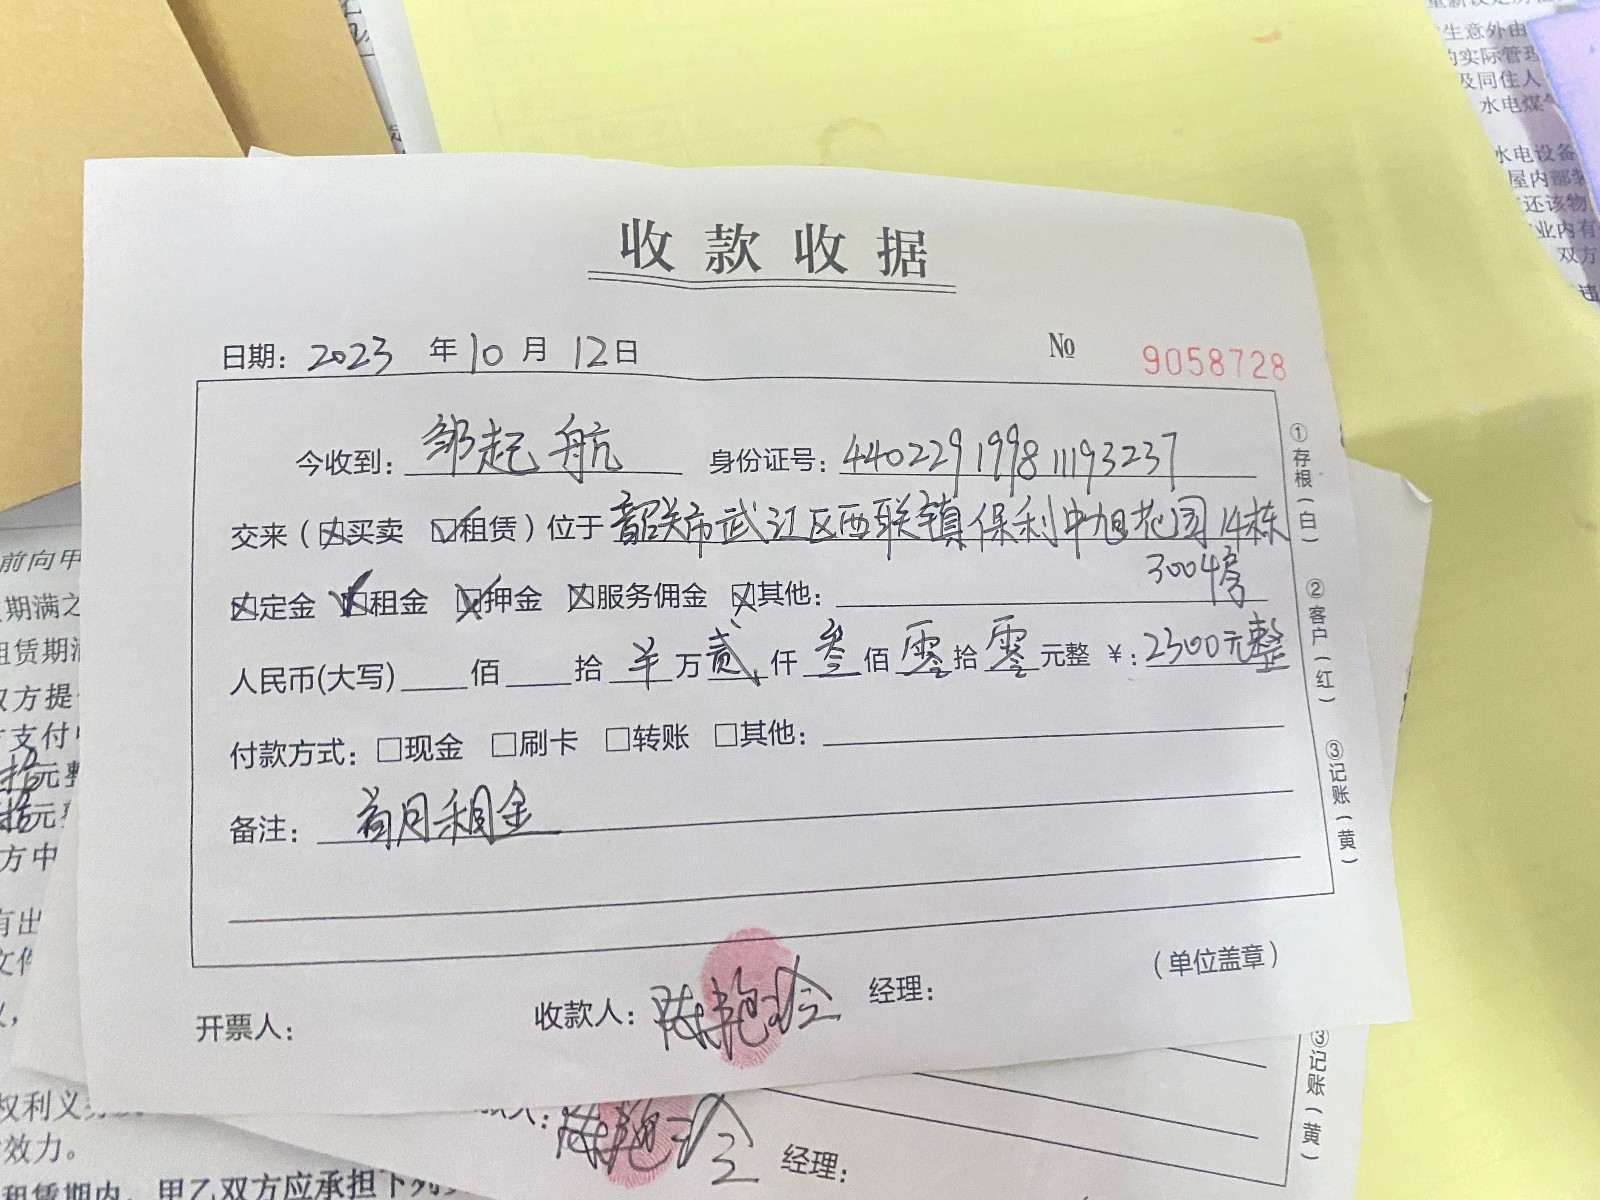 收款收据
日期：2023 年 10 月 12 日 № 9058728
今收到：邹起航 身份证号：440229199811193237
交来（☒买卖 ☑租赁）位于 韶关市武江区西联镇保利中旭花园14栋
3004房
☒定金 ☑租金 ☒押金 ☒服务佣金 ☒其他：
人民币(大写) 佰 拾 羊 万 贰 仟 叁 佰 零 拾 零 元整 ￥：2300元整
付款方式：□现金 □刷卡 □转账 □其他：
备注：首月租金
(单位盖章)
开票人： 收款人：陈艳玲 经理：
①存根(白) ②客户(红) ③记账(黄)
陈艳玲 经理：
③记账(黄)
生意外由
的实际管理
及同住人
水电煤气
水电设备
屋内部装
还该物
业内有
双方
违
前向甲
期满之
租赁期满
双方提
支付
拾元整
拾元
方中
有出
文件
权利义
效力。
租赁期内，甲乙双方应承担下列